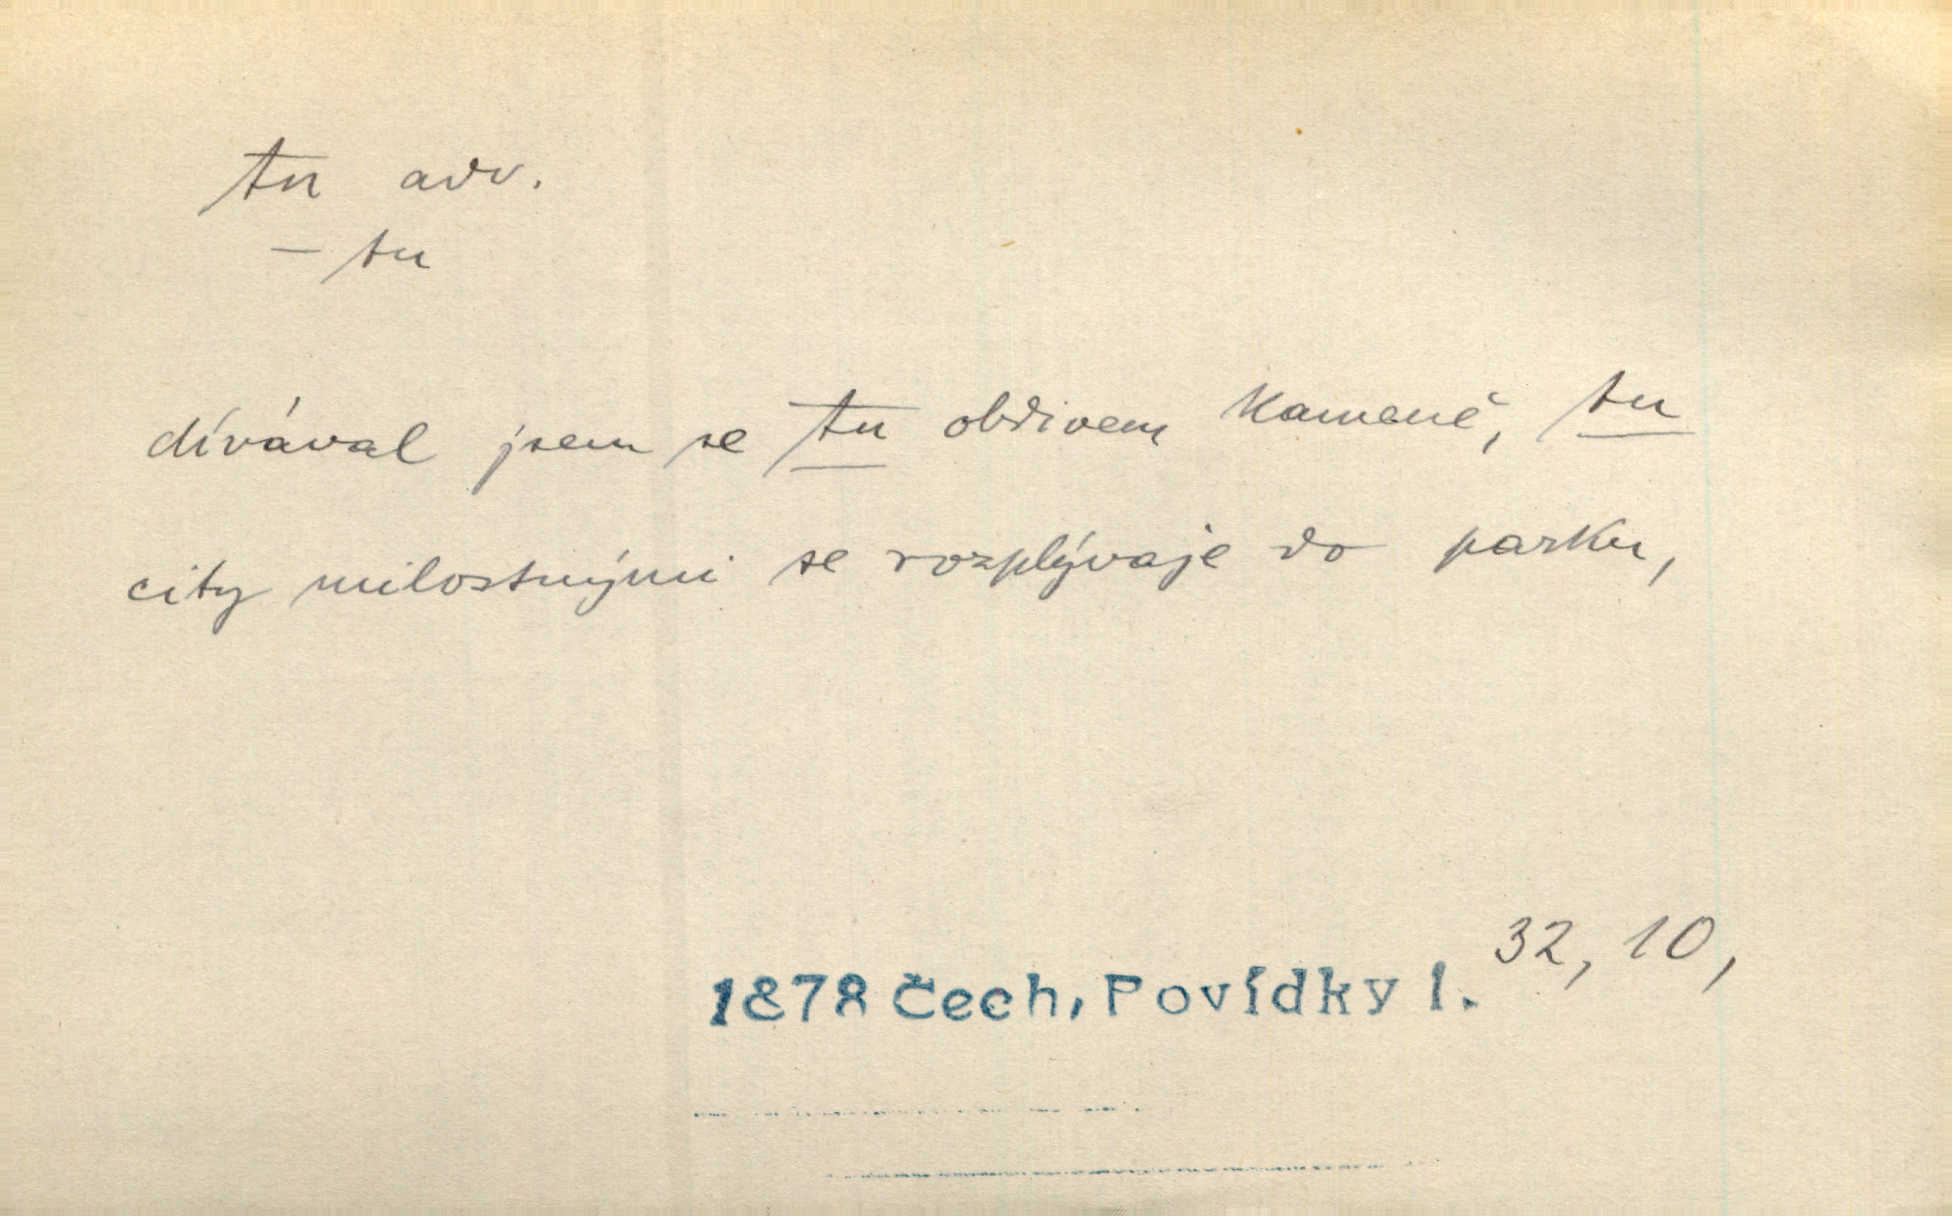 tu adv.
– tu
dívával jsem se tu obdivem kameně, tu
city milostnými se rozplývaje do parku,
1878 Čech, Povídky I. 32, 10,